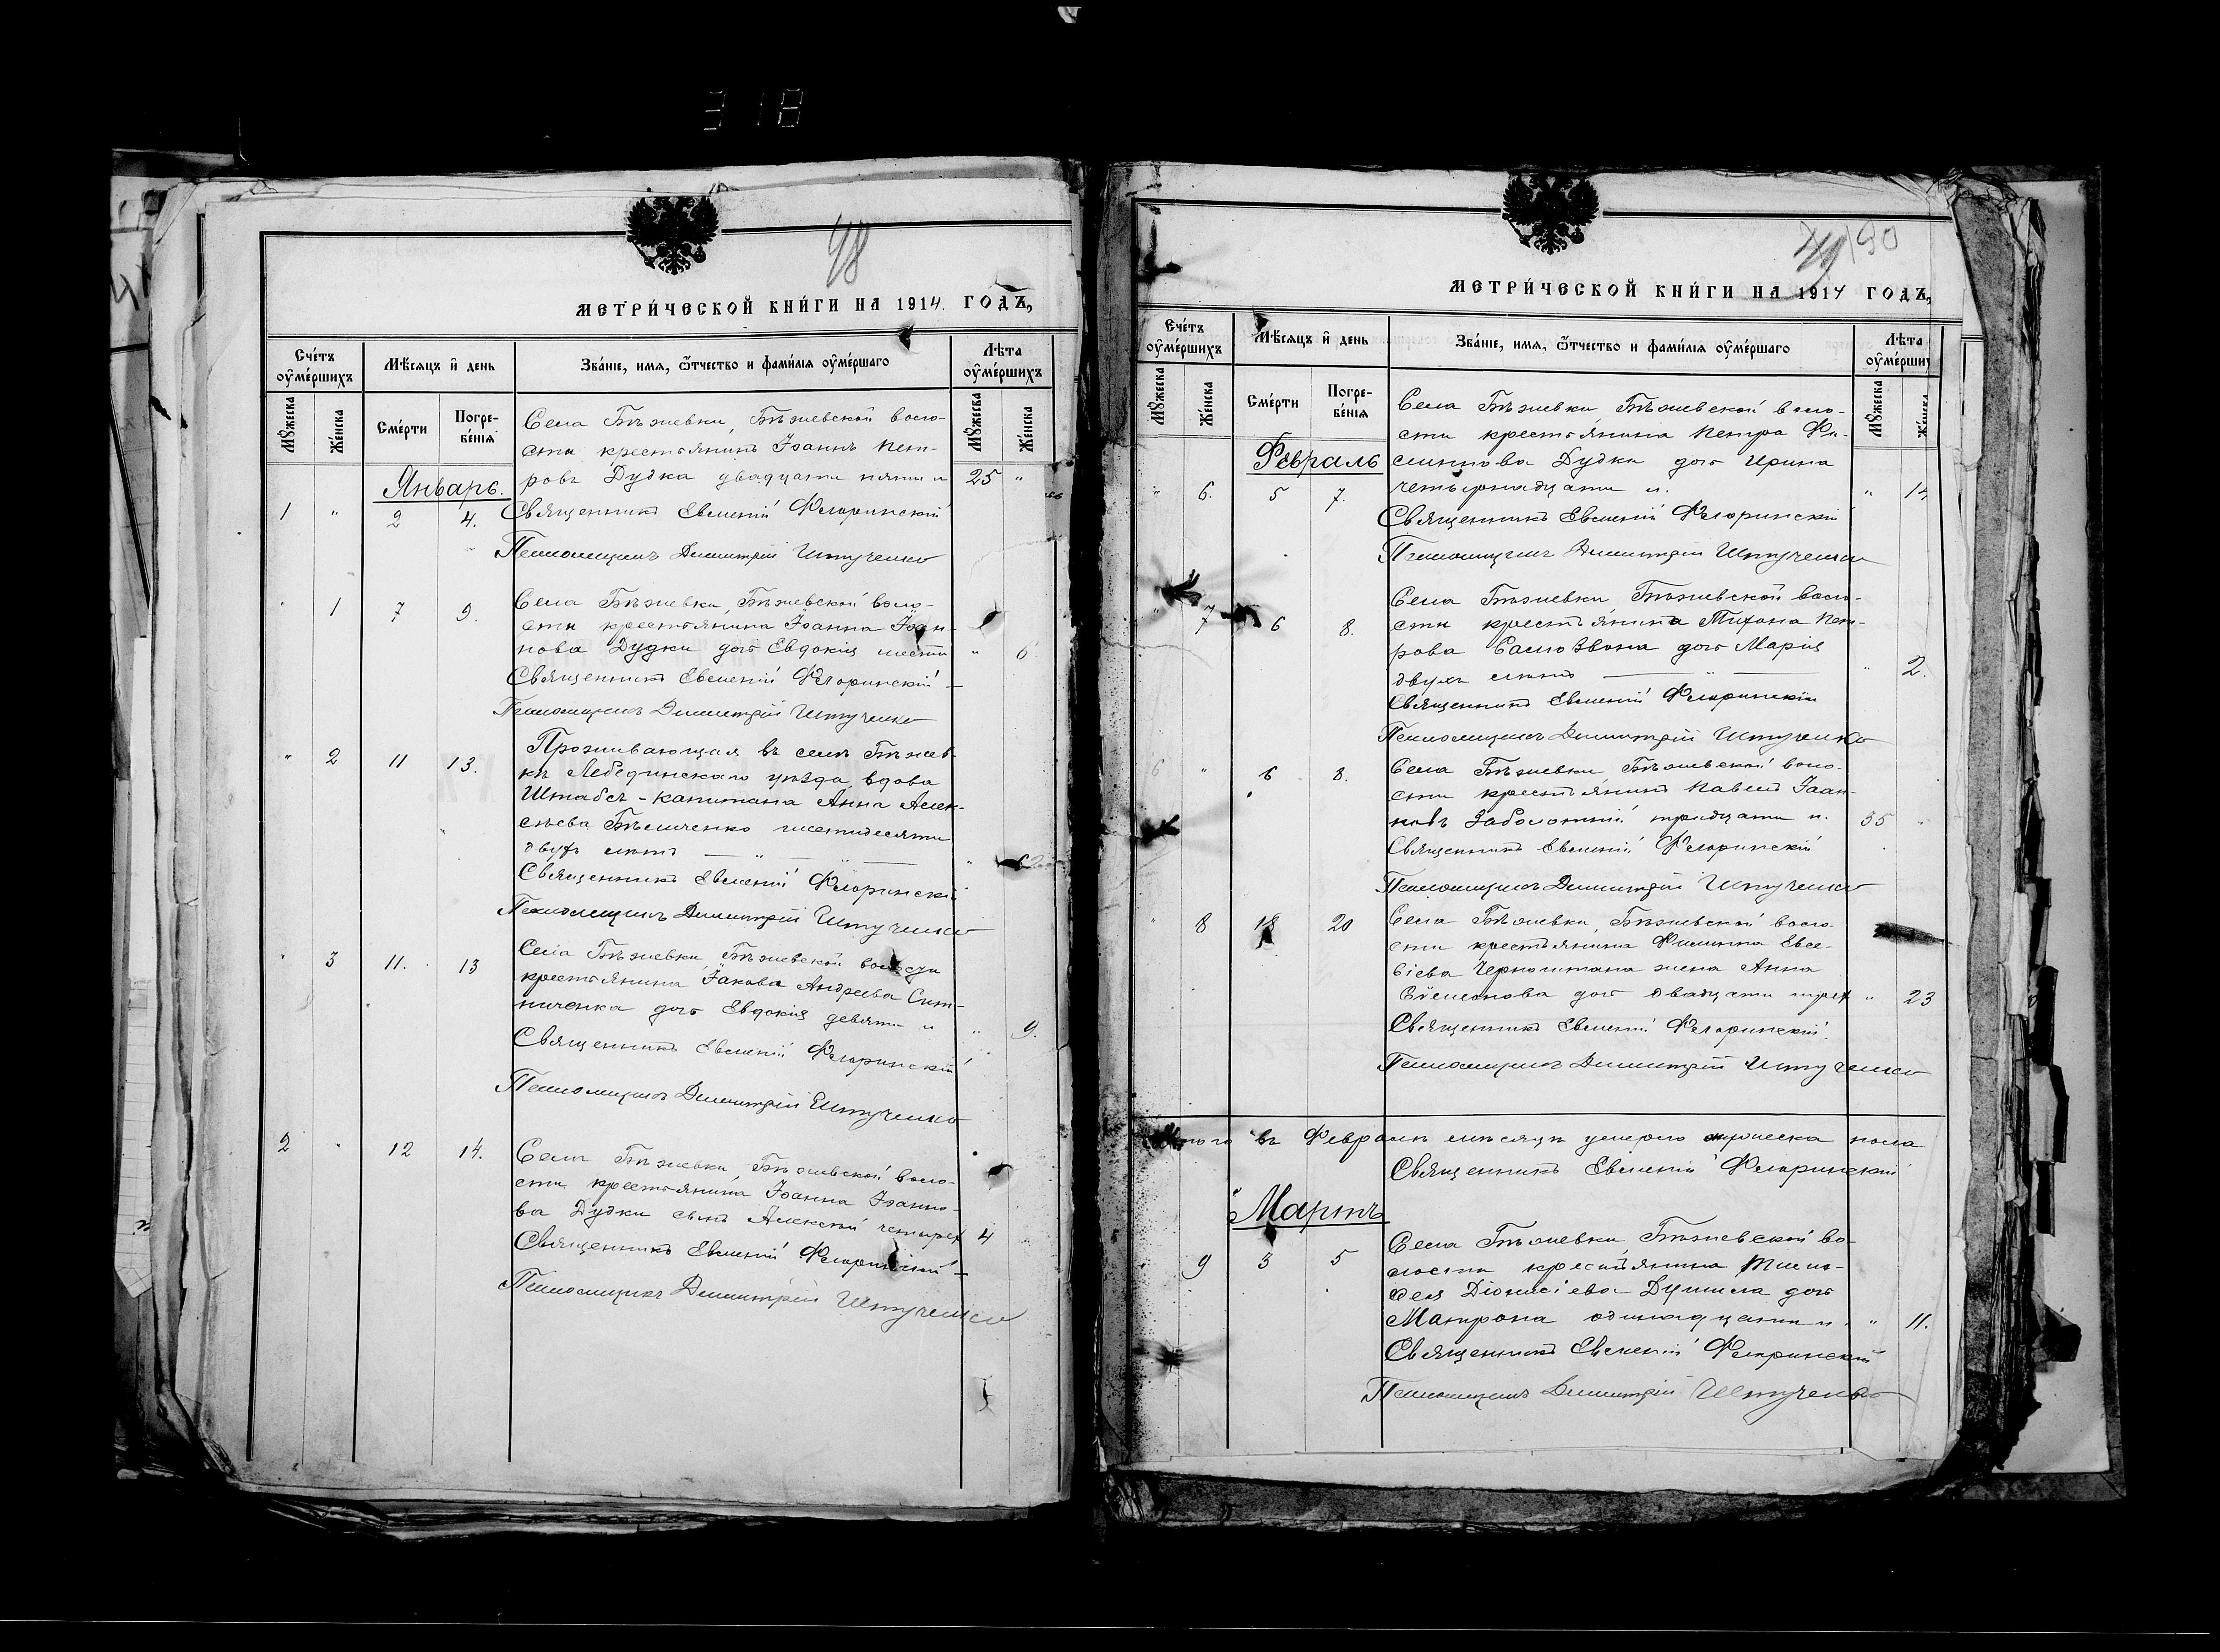 318
48
МЕТРИ́ЧЕСКОЙ КНИ́ГИ НА 1914. ГОДЪ,
Сче́тъ оу҆ме́ршихъ
Мѣ́сяцъ и҆ день
Зва́нїе, имя, ѿтчество и фами́лїѧ оу҆ме́ршаго
Лѣ́та оу҆ме́ршихъ
Му́жеска
Же́нска
Сме́рти
Погре-
бе́нїѧ
Му́жеска
Же́нска
Января.
Села Бѣжевки, Бѣжевской воло-
сти крестьянинъ Іоаннъ Пет-
ровъ Дудка двадцати пяти л 25 "
1 " 2 4. Священникъ Евменій Флоринскій
Псаломщикъ Димитрій Штученко
" 1 7 9. Села Бѣжевки, Бѣжевской воло-
сти крестьянина Іоанна Іоан-
нова Дудки дочь Евдокія шести " 6
Священникъ Евменій Флоринскій
Псаломщикъ Димитрій Штученко
" 2 11 13. Проживающая въ селѣ Бѣжев-
кѣ Лебединскаго уѣзда, вдова
Штабсъ-капитана Анна Алек-
сѣева Бѣличенко шестидесяти
двухъ лѣтъ — " —
Священникъ Евменій Флоринскій
Псаломщикъ Димитрій Штученко
" 3 11. 13 Села Бѣжевки, Бѣжевской волости
крестьянина Іакова Андреева Сит-
ниченка дочь Евдокія девяти л " 9.
Священникъ Евменій Флоринскій
Псаломщикъ Димитрій Штученко
2 " 12 14. Села Бѣжевки, Бѣжевской воло-
сти крестьянина Іоанна Іоанно-
ва Дудки сынъ Алексій четырех 4
Священникъ Евменій Флоринскій
Псаломщикъ Димитрій Штученко
190
МЕТРИ́ЧЕСКОЙ КНИ́ГИ НА 1914 ГОДЪ,
Сче́тъ оу҆ме́ршихъ
Мѣ́сяцъ и҆ день
Зва́нїе, имя, ѿтчество и фами́лїѧ оу҆ме́ршаго
Лѣ́та
оу҆ме́рши
Му́жеска
Же́нска
Сме́рти
Погре-
бе́нїѧ
Му́жеска
Же́нска
Февраль
Села Бѣжевки, Бѣжевской воло-
сти крестьянина Петра Фи-
липпова Дудки дочь Ирина
" 6. 5 7. четырнадцати л. " 14
Священникъ Евменій Флоринскій
Псаломщикъ Димитрій Штученко
" 7 6 8. Села Бѣжевки, Бѣжевской воло-
сти крестьянина Тихона Пет-
рова Самозвона дочь Марія
двухъ лѣтъ — " — " 2.
Священникъ Евменій Флоринскій
Псаломщикъ Димитрій Штученко
6 " 6 8. Села Бѣжевки, Бѣжевской воло-
сти крестьянинъ Павелъ Іоан-
новъ Заболотній тридцати п. 35 "
Священникъ Евменій Флоринскій
Псаломщикъ Димитрій Штученко
" 8 18 20 Села Бѣжевки, Бѣжевской воло-
сти крестьянина Филиппа Евсе-
віева Черноштана жена Анна
Сѵмеонова дочь двадцати трех " 23
Священникъ Евменій Флоринскій
Псаломщикъ Димитрій Штученко
Итого въ Февралѣ мѣсяцѣ умерло мужеска пола
Священникъ Евменій Флоринскій
Мартъ
9 3 5 Села Бѣжевки, Бѣжевской во-
лости крестьянина
Діонисіева дочь
Матрона одинадцати л. " 11.
Священникъ Евменій Флоринскій
Псаломщикъ Димитрій Штученко